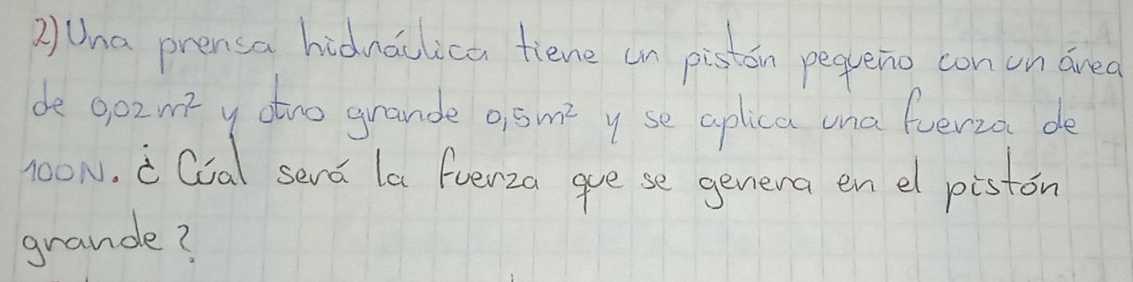 2) Una prensa hidráulica tiene un pistón pequeño con un área
de 0,02 m² y otro grande 0,5m² y se aplica una fuerza de
100N. ¿ Cúal será la fuerza que se genera en el pistón
grande?